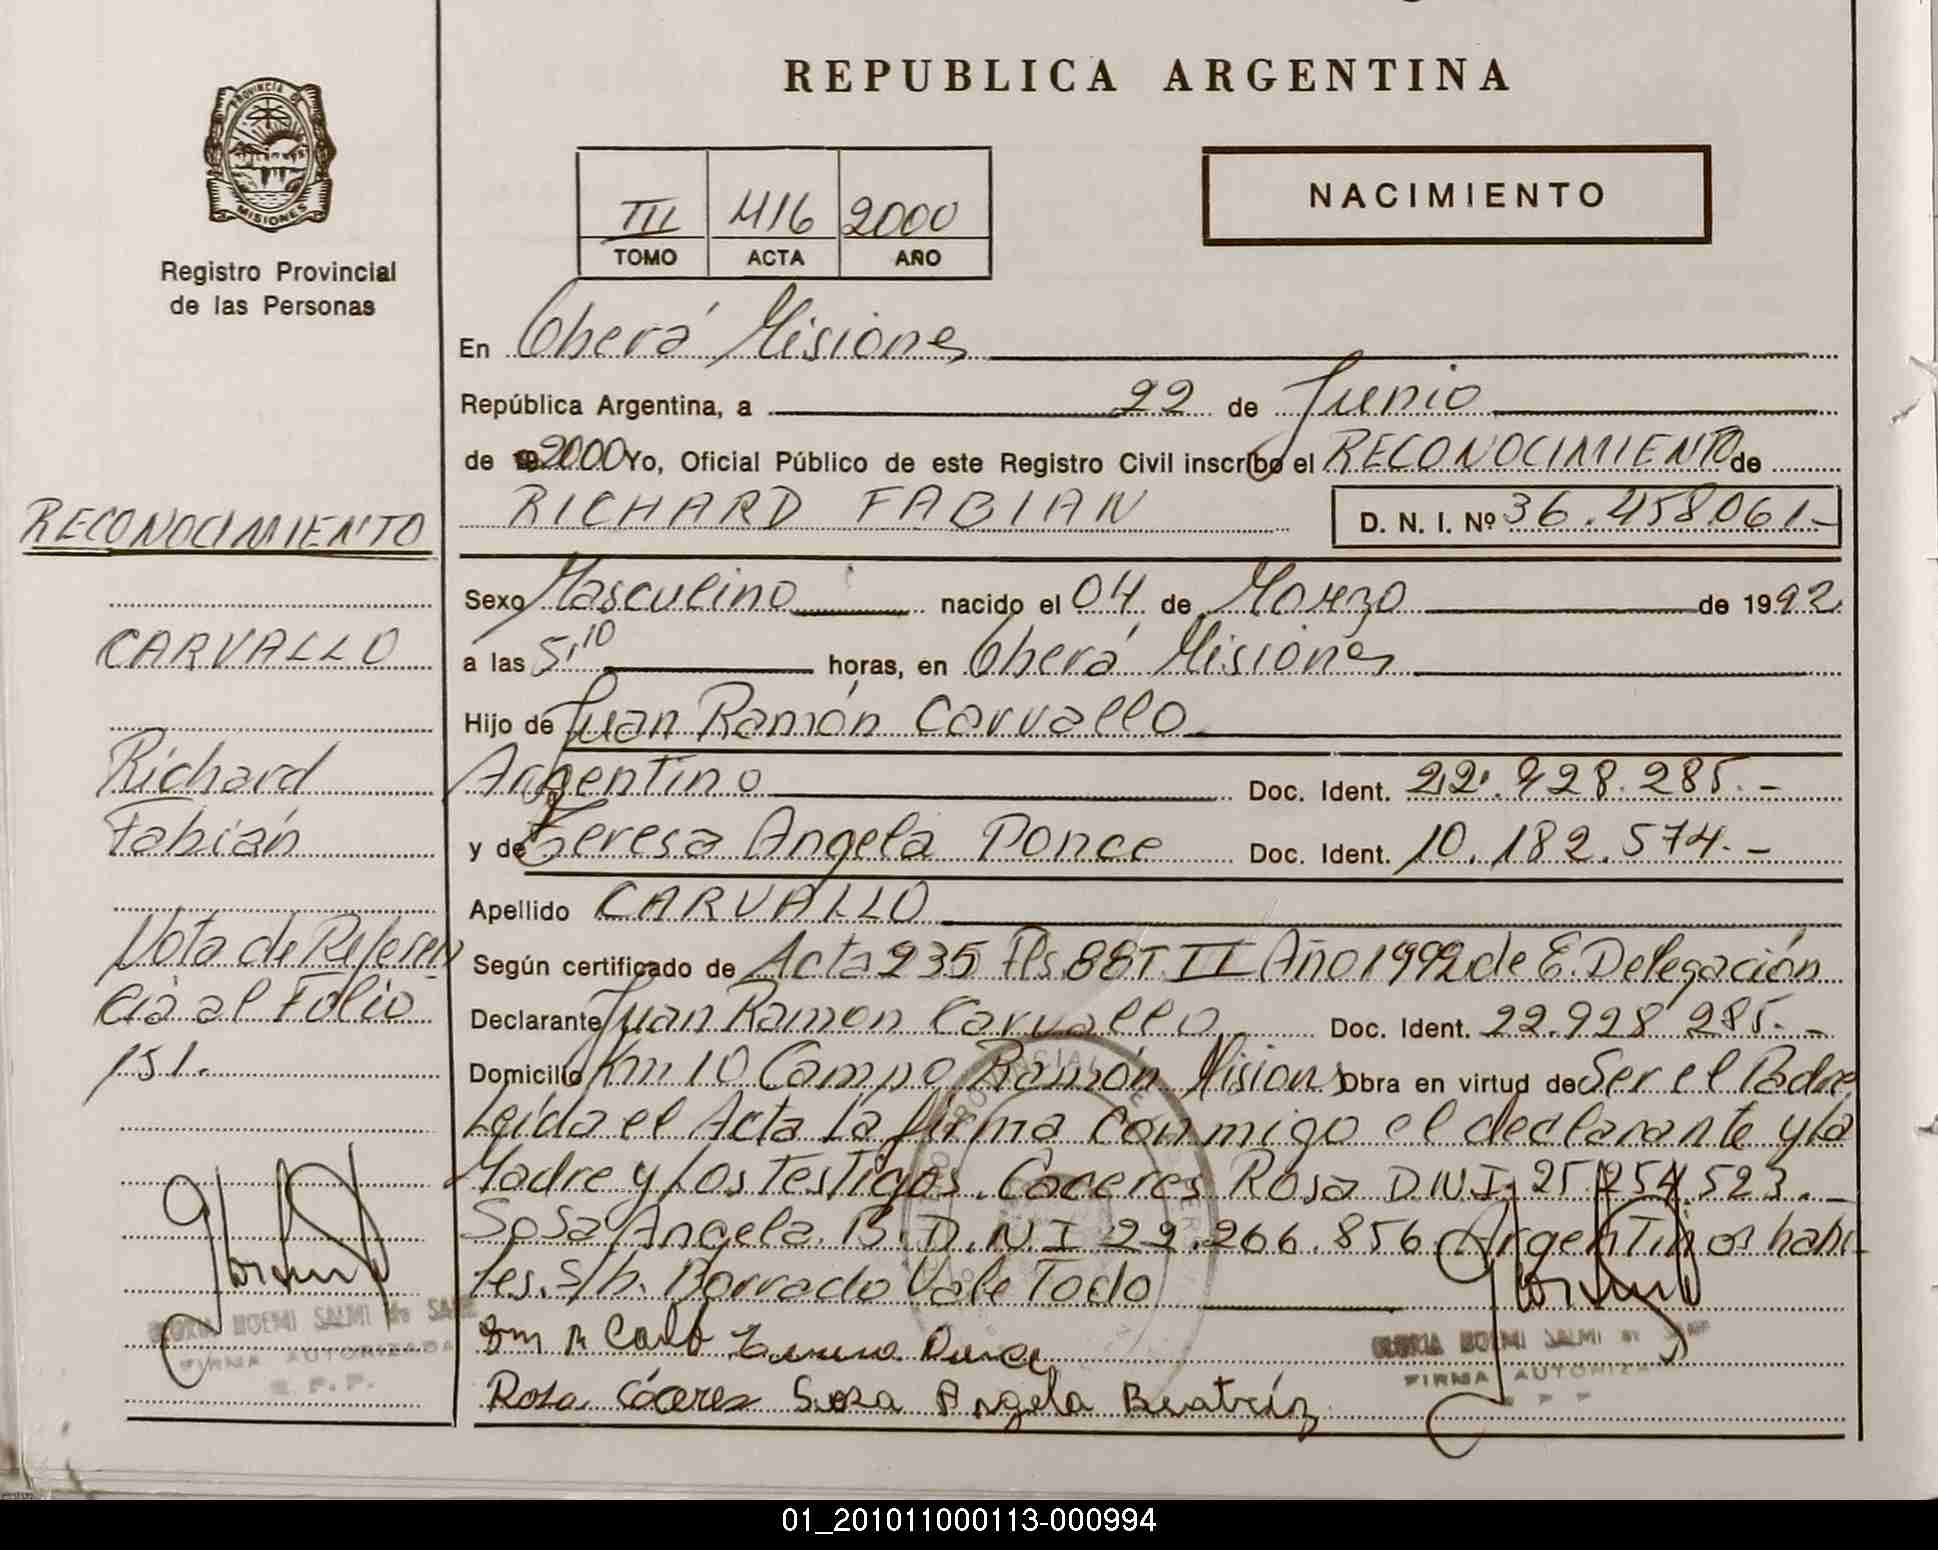 REPUBLICA ARGENTINA
PROVINCIA DE
MISIONES
Registro Provincial
de las Personas
III 416 2000
TOMO ACTA AÑO
NACIMIENTO
En Oberá Misiones
República Argentina, a 22 de Junio
de 2000 Yo, Oficial Público de este Registro Civil inscribo el RECONOCIMIENTO de
RICHARD FABIAN D. N. I. Nº 36.458061-
Sexo Masculino nacido el 04 de Marzo de 1992
a las 5,10 horas, en Oberá Misiones
Hijo de Juan Ramón Carvallo
Argentino Doc. Ident. 22.928.285.-
y de Teresa Angela Ponce Doc. Ident. 10.182.574.-
Apellido CARVALLO
Según certificado de Acta 235 Fls 88 T II Año 1992 de E. Delegación
Declarante Juan Ramon Carvallo Doc. Ident. 22.928 285.-
Domicilio Km 10 Campo Ramón Misions Obra en virtud de Ser el Padre
Leída el Acta La firma conmigo el declarante y la
Madre y Los Testigos. Caceres Rosa D.N.I. 25.254.523.-
Sosa Angela. B. D.N.I 22.266.856 Argentinos habi
tes. S/b. Borrado Vale Todo
Rosa Cáceres Sosa Angela Beatríz
RECONOCIMIENTO
CARVALLO
Richard
Fabián
Nota de Referen
cia al Folio
151.
NOEMI SALMI de
FIRMA AUTORIZADA
NOEMI SALMI
FIRMA
01_201011000113-000994